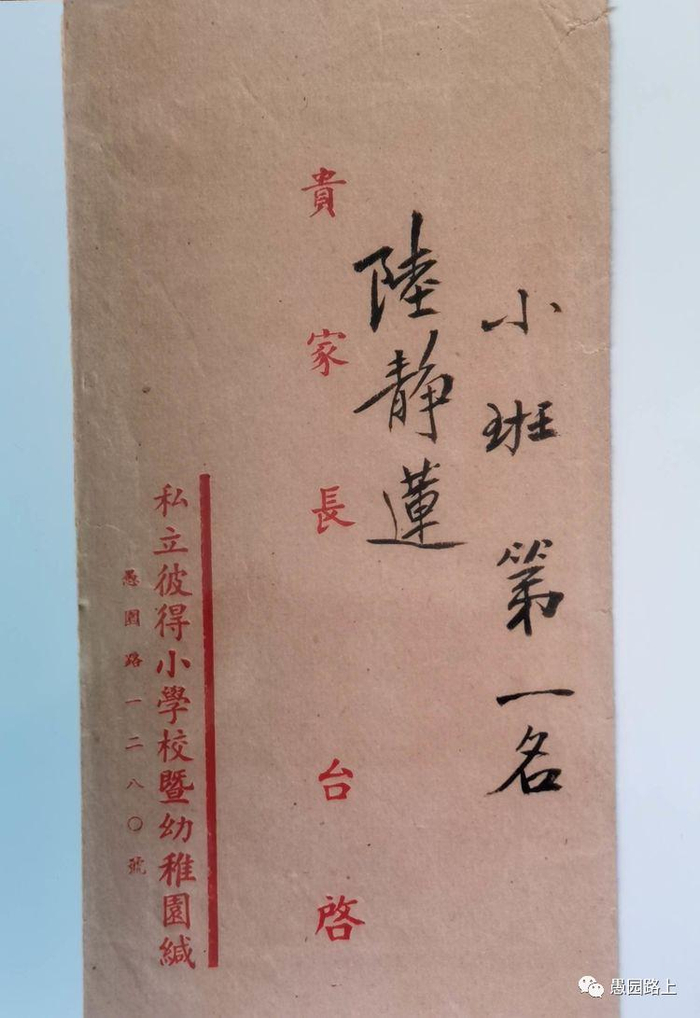 小班第一名
陸靜蓮
貴家長台啓
私立彼得小學校暨幼稚園緘
愚園路一二八〇號
愚园路上